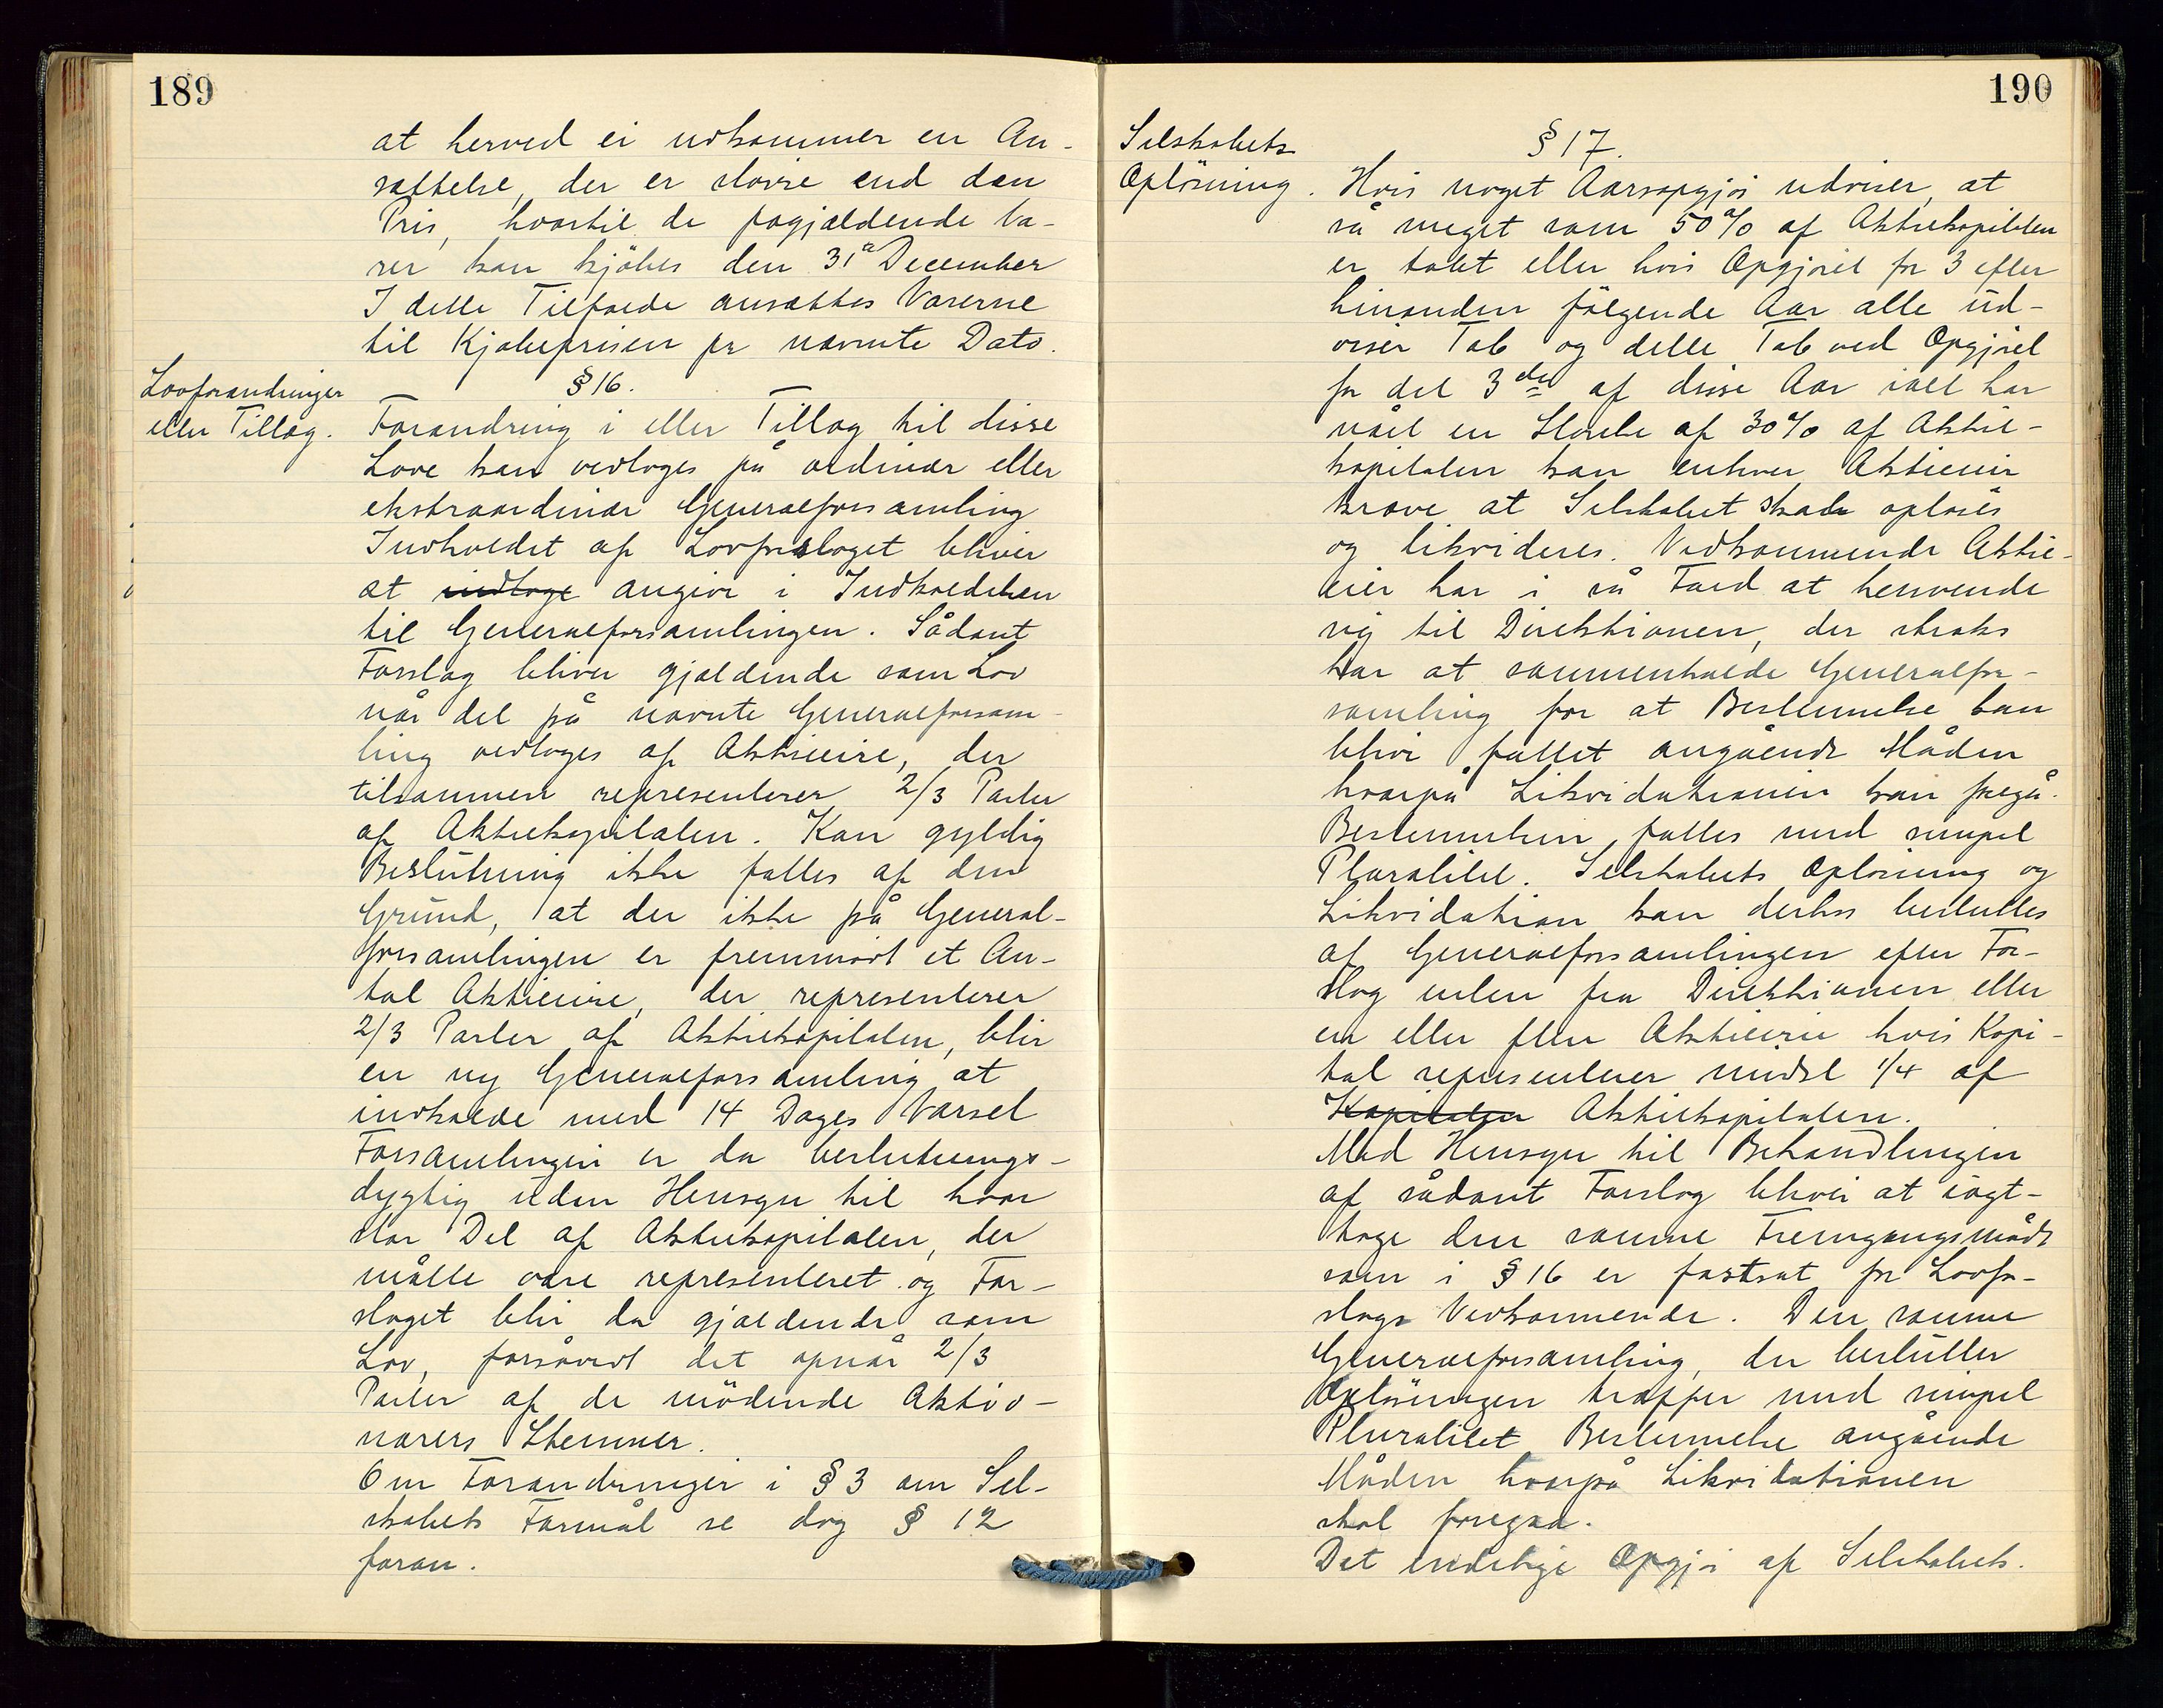 189
at herved ei udkommer en An-
sættelse, der er större end den
Pris, hvortil de pågjældende Va-
rer kan kjöbes den 31te December
I dette Tilfælde ansættes Varerne
til Kjöbeprisen pr nævnte Dato.
Lovforandringer
eller Tillæg.
§ 16.
Forandring i eller Tillæg til disse
Love kan vedtages på ordinær eller
ekstraordinær Generalforsamling
Indholdet af Lovforslaget bliver
at indtage angive i Indkaldelsen
til Generalforsamlingen. Sådant
Forslag bliver gjældende som Lov
når det på nævnte Generalforsam-
ling vedtages af Aktieeiere, der
tilsammen representerer 2/3 Parter
af Aktiekapitalen. Kan gyldig
Beslutning ikke fattes af den
Grund, at der ikke på General-
forsamlingen er fremmödt et An-
tal Aktieeiere, der representerer
2/3 Parter af Aktiekapitalen, blir
en ny Generalforsamling at
indkalde med 14 Dages Varsel
Forsamlingen er da beslutnings-
dygtig uden Hensyn til hvor
stor Del af Aktiekapitalen, der
måtte være representeret og For-
slaget blir da gjældende som
Lov, forsåvidt det opnår 2/3
Parter af de mödende Aktio-
nærers Stemmer.
Om Forandringer i § 3 om Sel-
skabets Formål se dog § 12
foran.
190
Selskabets
Oplösning.
§ 17.
Hvis noget Aarsopgjör udviser, at
så meget som 50% af Aktiekapitalen
er tabt eller hvis Opgjöret for 3 efter
hinanden fölgende Aar alle ud-
viser Tab og dette Tab ved Opgjöret
for det 3die af disse Aar ialt har
nået en Störrelse af 30% af Aktie-
kapitalen kan enhver Aktieeier
kræve at Selskabet skal oplöses
og likvideres. Vedkommende Aktie-
eier har i så Fald at henvende
sig til Direktionen, der straks
har at sammenkalde Generalfor-
samling for at Bestemmelse kan
blive fattet angående Måden
hvorpå Likvidationen kan foregå.
Bestemmelsen fattes med simpel
Pluralitet. Selskabets Oplösning og
Likvidation kan derhos besluttes
af Generalforsamlingen efter For-
slag enten fra Direktionen eller
en eller flere Aktieeiere hvis Kapi-
tal representerer mindst 1/4 af
Kapitalen Aktiekapitalen.
Med Hensyn til Behandlingen
af sådant Forslag bliver at iagt-
tage den samme Fremgangsmåde
som i § 16 er fastsat for Lovfor-
slags Vedkommende. Den samme
Generalforsamling, der beslutter
Oplösningen træffer med simpel
Pluralitet Bestemmelse angående
Måden hvorpå Likvidationen
skal foregaa.
Det endelige Opgjör af Selskabets